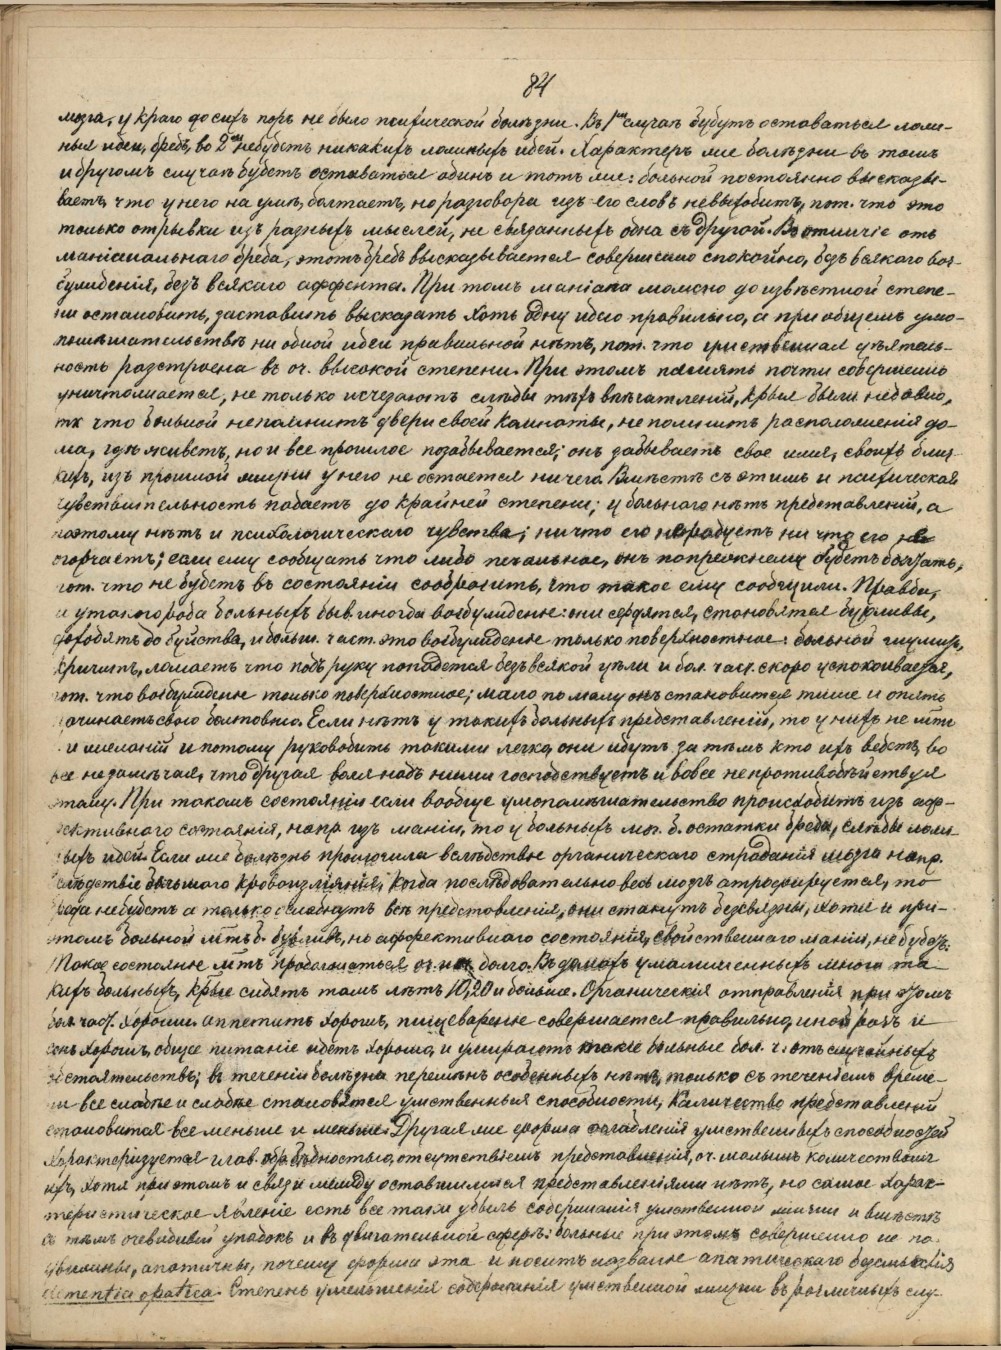 84
мозга, у краго до сихъ поръ не было психической болѣзни. Въ 1мъ случаѣ будутъ оставаться ложн-
ныя идеи, бредъ, во 2мъ небудетъ никакихъ ложныхъ идей. Характеръ же болѣзни въ томъ
и другомъ случаѣ будетъ оставаться одинъ и тотъ же: больной постоянно высказы-
ваетъ, что у него на умѣ, болтаетъ, но разговора изъ его словъ невыходитъ, пот. что это
только отрывки изъ разныхъ мыслей, не связанныхъ одна съ другой. Въ отличіе отъ
маніакальнаго бреда, этотъ бредъ высказывается совершенно спокойно, безъ всякаго воз-
бужденія, безъ всякаго аффекта. При томъ маніака можно до извѣстной степе-
ни остановить, заставить высказать хоть одну идею правильно, а при общемъ умо-
помѣшательствѣ ни одной идеи правильной нѣтъ, пот. что умственная дѣятель-
ность разстроена въ оч. высокой степени. При этомъ память почти совершенно
уничтожается, не только исчезаютъ слѣды тѣхъ впечатлѣній, крыя были недавно,
тк что больной непомнитъ двери своей комнаты, не помнитъ расположенія до-
ма, гдѣ живетъ, но и все прошлое позабывается; онъ забываетъ свое имя, своихъ близ-
кихъ, изъ прошлой жизни у него не остается ничего. Вмѣстѣ съ этимъ и психическая
чувствительность падаетъ до крайней степени; у больнаго нѣтъ представленій, а
поэтому нѣтъ и психологическаго чувства; ничто его нерадуетъ ни что его не
огорчаетъ; если ему сообщать что либо печальное, онъ попрежнему будетъ болтать,
пот. что не будетъ въ состояніи сообразить, что такое ему сообщили. Правда,
и у такого рода больныхъ быв. иногда возбужденіе: они сердятся, становятся бурливы,
доходятъ до буйства, и больш. част. это возбужденіе только поверхностное: больной шумитъ,
кричитъ, ломаетъ что подъ руку попадется безъ всякой цѣли и бол. част. скоро успокоивается,
пот. что возбужденіе только поверхностное; мало по малу онъ становится тише и опять
начинаетъ свою болтовню. Если нѣтъ у такихъ больныхъ представленій, то у нихъ не
и желаній и потому руководить такими легко, они идутъ за тѣмъ кто ихъ ведетъ, во
все незамѣчая, что другая воля надъ ними господствуетъ и вовсе непротиводѣйствуя
этому. При такомъ состояніи если вообще умопомѣшательство происходитъ изъ аф-
фективнаго состоянія, напр изъ маніи, то у больныхъ мог. б. остатки бреда, слѣды лож-
ныхъ идей. Если же болѣзнь произошла вслѣдствіе органическаго страданія мозга напр.
вслѣдствіе бывшаго кровоизліянія, когда послѣдовательно весь мозгъ атрофируется, то
бреда небудетъ а только ослабнутъ всѣ представленія, они станутъ безсвязны, хотя и при-
этомъ больной мтъ б. бурливъ, но аффективнаго состоянія, свойственнаго маніи, не будетъ.
Такое состояніе мтъ продолжаться оч. долго. Въ домахъ умалишенныхъ много та-
кихъ больныхъ, крые сидятъ тамъ лѣтъ 10, 20 и больше. Органическія отправленія при этомъ
бол. част. хороши. аппетитъ хорошъ, пищевареніе совершается правильно, иной разъ и
сонъ хорошъ, общее питаніе идетъ хорошо, и умираютъ такіе больные бол. ч. отъ случайныхъ
обстоятельствъ; въ теченіи болѣзни перемѣнъ особенныхъ нѣтъ, только съ теченіемъ време-
ни все слабѣе и слабѣе становятся умственныя способности, количество представленій
становится все меньше и меньше. Другая же форма ослабленія умственныхъ способностей
характеризуется глав. обр. бѣдностью, отсутствіемъ представленія, оч. малымъ количествомъ
ихъ, хотя при этомъ и связи между оставшимися представленіями нѣтъ, но самое харак-
теристическое явленіе есть все таки убыль содержанія умственной жизни и вмѣстѣ
съ тѣмъ очевидный упадокъ и въ двигательной сферѣ: больные при этомъ совершенно не по-
движны, апатичны, почему форма эта и носитъ названіе апатическаго безсмыслія
dementia apatica. Степень уменьшенія содержанія умственной жизни въ различныхъ слу-